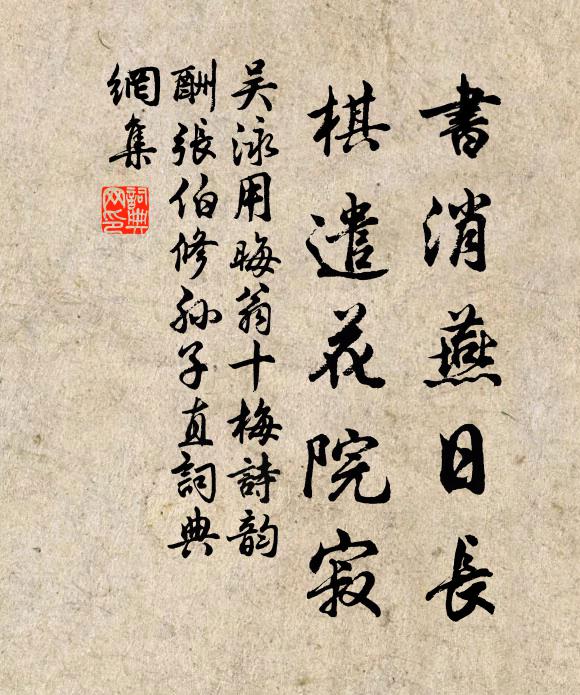 書消燕日長
棋遣花院寂
吴泳用晦翁十梅詩韵
酬張伯修孫子直詞典
網集
詞典
网印